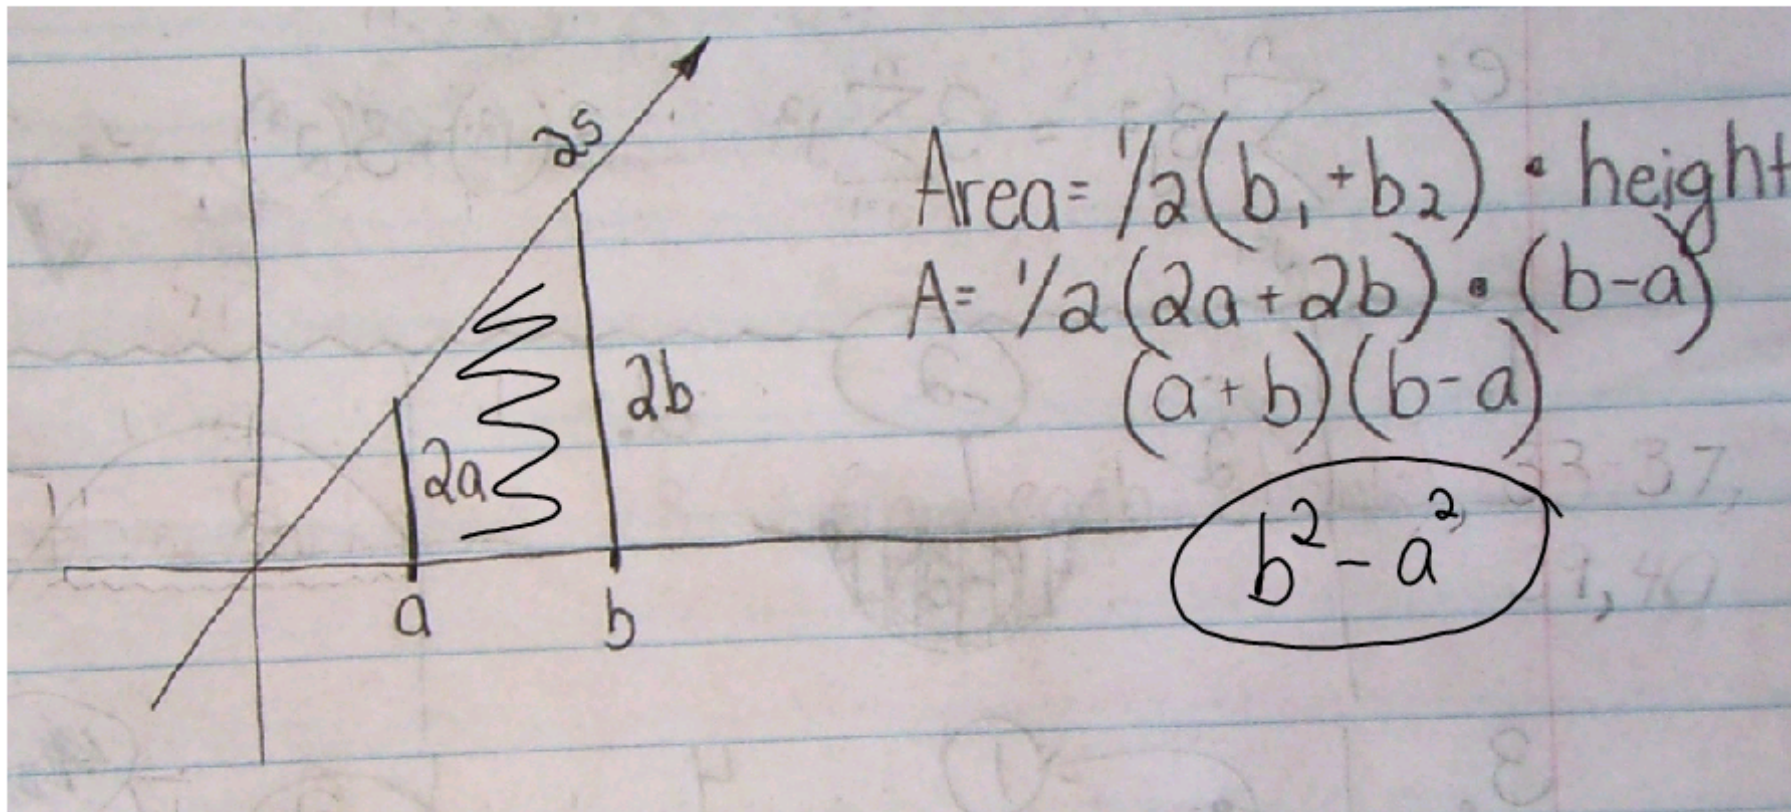 2s
2a
2b
a
b
Area = 1/2(b₁ + b₂) · height
A = 1/2(2a + 2b) · (b - a)
(a + b)(b - a)
b² - a²